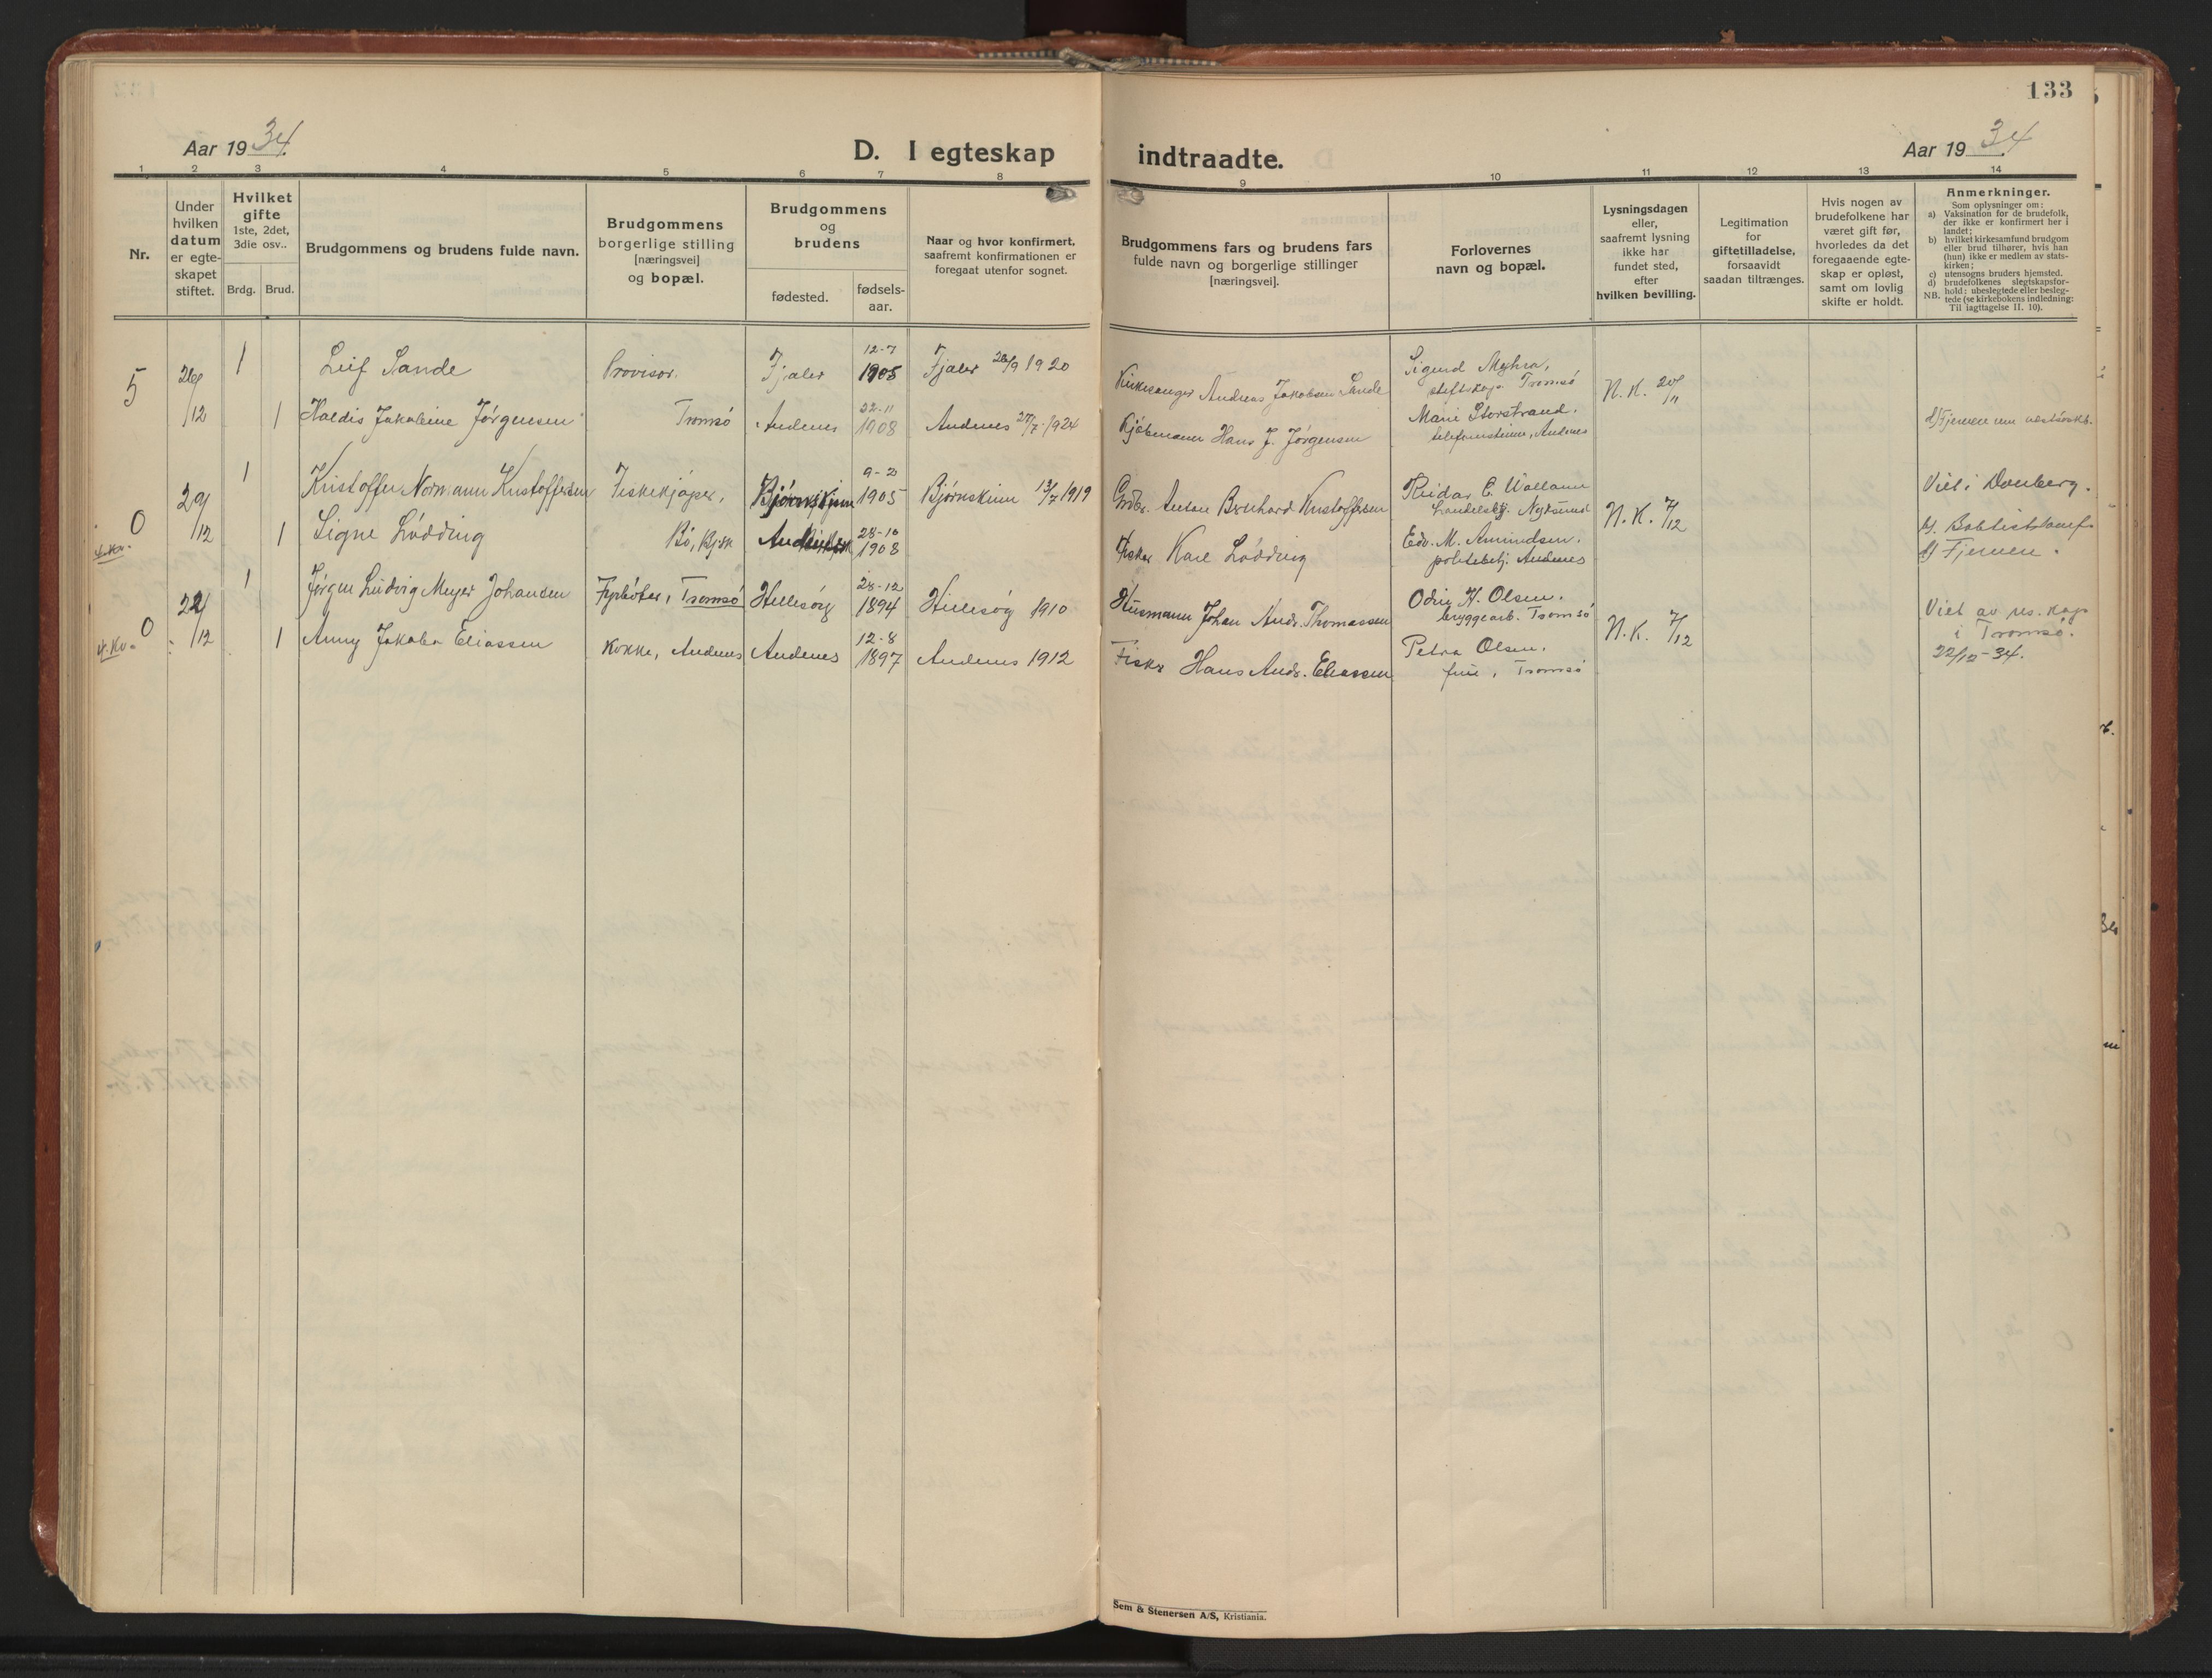 133
Aar 1934.
D. I egteskap
indtraadte.
Aar 1934
1 2 3 4 5 6 7 8 9 10 11 12 13 14
Nr.
Under
hvilken
datum
er egte-
skapet
stiftet.
Hvilket
gifte
1ste, 2det,
3die osv..
Brdg. Brud.
Brudgommens og brudens fulde navn.
Brudgommens
borgerlige stilling
[næringsvei]
og bopæl.
Brudgommens
og
brudens
fødested.
fødsels-
aar.
Naar og hvor konfirmert,
saafremt konfirmationen er
foregaat utenfor sognet.
Brudgommens fars og brudens fars
fulde navn og borgerlige stillinger
[næringsvei].
Forlovernes
navn og bopæl.
Lysningsdagen
eller,
saafremt lysning
ikke har
fundet sted,
efter
hvilken bevilling.
Legitimation
for
giftetilladelse,
forsaavidt
saadan tiltrænges.
Hvis nogen av
brudefolkene har
været gift før,
hvorledes da det
foregaaende egte-
skap er opløst,
samt om lovlig
skifte er holdt.
Anmerkninger.
Som oplysninger om:
a) Vaksination for de brudefolk,
der ikke er konfirmert her i
landet;
b) hvilket kirkesamfund brudgom
eller brud tilhører, hvis han
(hun) ikke er medlem av stats-
kirken;
c) utensogns bruders hjemsted.
d) brudefolkenes slegtskapsfor-
hold: ubeslegtede eller besleg-
NB. tede (se kirkebokens indledning:
Til iagttagelse II. 10).
5 26/12 1 Leif Sande Provisor. Fjaler 12-7 1905 Fjaler 26/9 1920 Kirkesanger Andreas Jakobsen Sande Sigurd Myhra, Tromsö N. K. 20/11
1 Haldis Jakobine Jörgensen Tromsö Andenes 22-11 1908 Andenes 27/7-1924 Kjöbmann Hans J. Jörgensen Marie Storstrand. Andenes
0 29/12 1 Kristoffer Normann Kristoffersen Fiskekjöper, Björnskinn 9-2 1905 Björnskinn 13/7 1919 Anton Bernhard Kristoffersen Reidar E. Wollann Nyksund N. K. 7/12 Viet i
1 Signe Lödding Bö, Bjsk 28-10 1908 Fisker Karl Lödding Edv. M. Amundsen. politibetj. Andenes Fjernen.
0 22/12 1 Jörgen Ludvig Meyer Johansen Fyrböter, Tromsö Hillesöy 28-12 1894 Hillesöy 1910 Husmann Johan Andr. Thomassen Odin H. Olsen. bryggearb. Tromsö N. K. 7/12 Viet av res. kap i Tromsö.
1 Anny Jakoba Eliassen Kokke, Andenes Andenes 12-8 1897 Andenes 1912 Fisker Hans Andr. Eliassen Petra Olsen. frue, Tromsö 22/12-34.
Sem & Stenersen A/S, Kristiania.